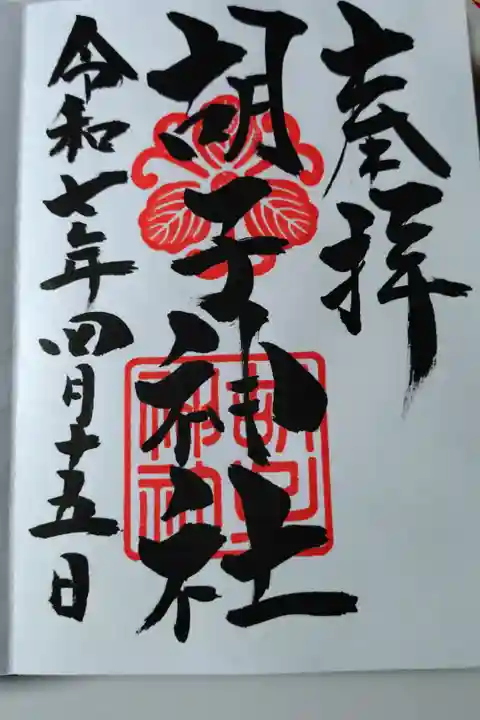 奉拝
胡子神社
令和七年四月十五日